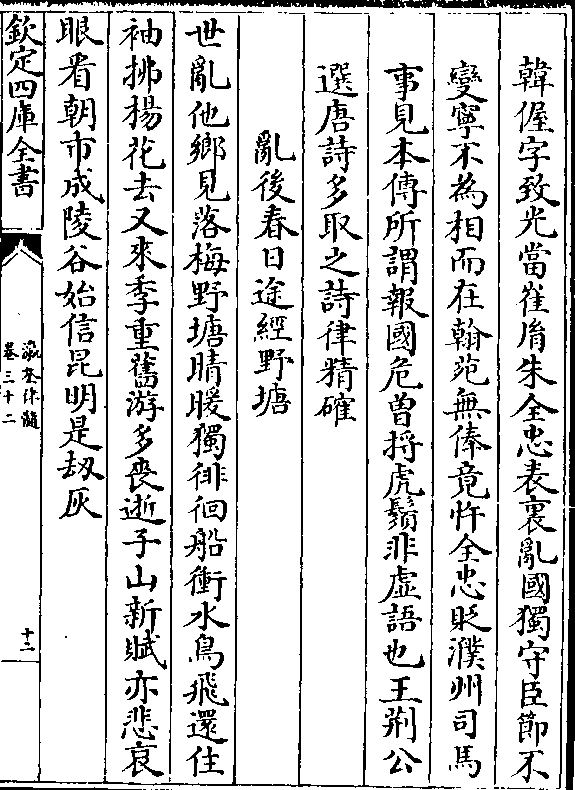 韓偓字致光當崔𦙍朱全忠表裏亂國獨守臣節不
變寧不為相而在翰苑無俸竟忤全忠貶濮州司馬
事見本傳所謂報國危曽捋虎鬚非虛語也王荆公
選唐詩多取之詩律精確
亂後春日途經野塘
世亂他鄉見落梅野塘晴暖獨徘徊船衝水鳥飛還住
袖拂楊花去又來季重舊游多喪逝子山新賦亦悲哀
眼看朝市成陵谷始信昆明是刼灰
欽定四庫全書
瀛奎律髓
卷三十二
十二